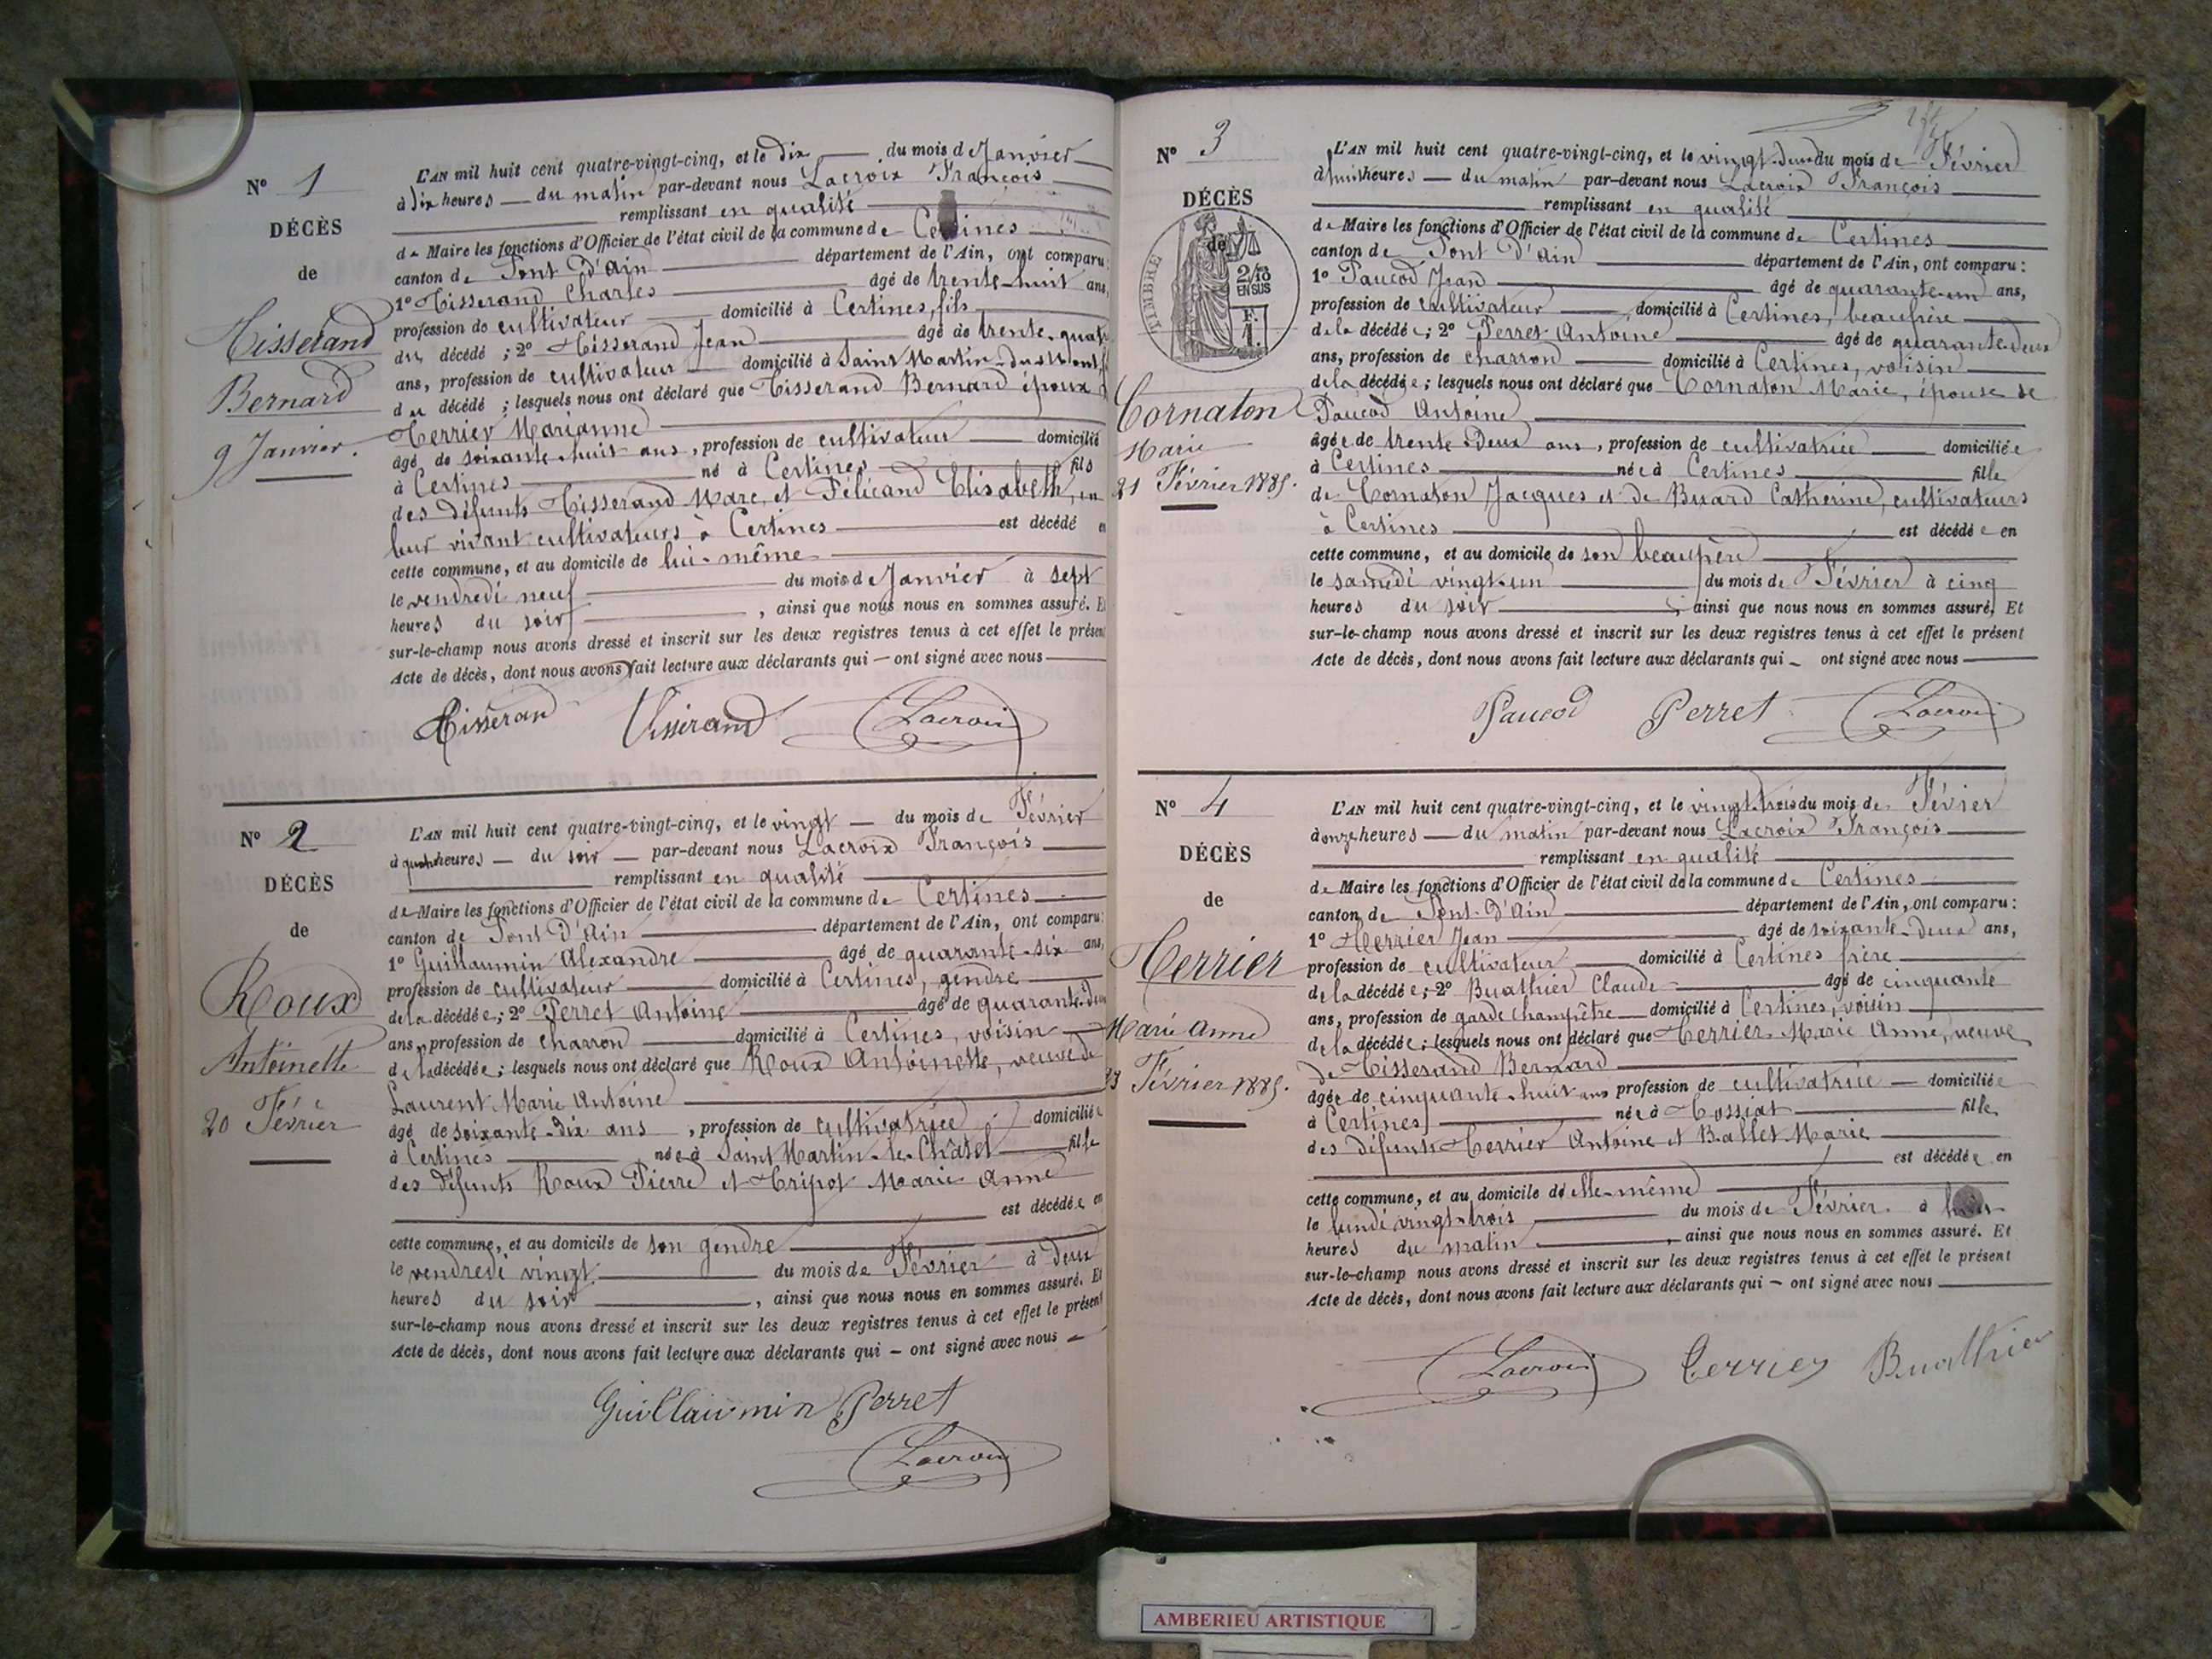 N° 1
DÉCÈS
de
Tisserand
Bernard
9 Janvier.
L'AN mil huit cent quatre-vingt-cinq, et le dix du mois de Janvier
à dix heures du matin par-devant nous Lacroix François
remplissant en qualité
de Maire les fonctions d'Officier de l'état civil de la commune de Certines
canton de Pont d'Ain département de l'Ain, ont comparu:
1° Tisserand Charles âgé de trente-huit ans,
profession de cultivateur domicilié à Certines, fils
du décédé ; 2° Tisserand Jean âgé de trente-quatre
ans, profession de cultivateur domicilié à Saint Martin-du-Mont,
du décédé ; lesquels nous ont déclaré que Tisserand Bernard époux
Terrier Marianne
âgé de soixante-huit ans, profession de cultivateur domicilié
à Certines né à Certines fils
des défunts Tisserand Marc, et Félicand Elisabeth, en
leur vivant cultivateurs à Certines est décédé en
cette commune, et au domicile de lui-même
le vendredi neuf du mois de Janvier à sept
heures du soir, ainsi que nous nous en sommes assuré. Et
sur-le-champ nous avons dressé et inscrit sur les deux registres tenus à cet effet le présent
Acte de décès, dont nous avons fait lecture aux déclarants qui — ont signé avec nous
Tisserand Tisserand Lacroix
N° 2
DÉCÈS
de
Roux
Antoinette
20 Février
L'AN mil huit cent quatre-vingt-cinq, et le vingt du mois de Février
à quatre heures du soir par-devant nous Lacroix François
remplissant en qualité
de Maire les fonctions d'Officier de l'état civil de la commune de Certines
canton de Pont d'Ain département de l'Ain, ont comparu:
1° Guillaumin Alexandre âgé de quarante-six ans,
profession de cultivateur domicilié à Certines, gendre
de la décédée ; 2° Perret Antoine âgé de quarante-deux
ans, profession de charron domicilié à Certines, voisin
de la décédée ; lesquels nous ont déclaré que Roux Antoinette, veuve de
Laurent Marie Antoine
âgé de soixante-dix ans, profession de cultivatrice domiciliée
à Certines née à Saint Martin-le-Châtel fille
des défunts Roux Pierre et Tripot Marie Anne
est décédée en
cette commune, et au domicile de son gendre
le vendredi vingt du mois de Février à deux
heures du soir, ainsi que nous nous en sommes assuré. Et
sur-le-champ nous avons dressé et inscrit sur les deux registres tenus à cet effet le présent
Acte de décès, dont nous avons fait lecture aux déclarants qui — ont signé avec nous
Guillaumin Perret
Lacroix
N° 3
DÉCÈS
de
TIMBRE
2/10 EN SUS
Cornaton
Marie
21 Février 1885.
L'AN mil huit cent quatre-vingt-cinq, et le vingt-deux du mois de Février
à huit heures du matin par-devant nous Lacroix François
remplissant en qualité
de Maire les fonctions d'Officier de l'état civil de la commune de Certines
canton de Pont d'Ain département de l'Ain, ont comparu :
1° Paucod Jean âgé de quarante-un ans,
profession de cultivateur domicilié à Certines, beaufrère
de la décédée ; 2° Perret Antoine âgé de quarante-deux
ans, profession de charron domicilié à Certines, voisin
de la décédée ; lesquels nous ont déclaré que Cornaton Marie, épouse de
Paucod Antoine
âgée de trente-deux ans, profession de cultivatrice domiciliée
à Certines née à Certines fille
de Cornaton Jacques et de Buard Catherine, cultivateurs
à Certines est décédée en
cette commune, et au domicile de son beaupère
le samedi vingt-un du mois de Février à cinq
heures du soir, ainsi que nous nous en sommes assuré, Et
sur-le-champ nous avons dressé et inscrit sur les deux registres tenus à cet effet le présent
Acte de décès, dont nous avons fait lecture aux déclarants qui — ont signé avec nous
Paucod Perret Lacroix
N° 4
DÉCÈS
de
Terrier
Marie Anne
23 Février 1885.
L'AN mil huit cent quatre-vingt-cinq, et le vingt-trois du mois de Février
à onze heures du matin par-devant nous Lacroix François
remplissant en qualité
de Maire les fonctions d'Officier de l'état civil de la commune de Certines
canton de Pont-d'Ain département de l'Ain, ont comparu :
1° Terrier Jean âgé de soixante-deux ans,
profession de cultivateur domicilié à Certines frère
de la décédée ; 2° Buathier Claude âgé de cinquante
ans, profession de garde champêtre domicilié à Certines, voisin
de la décédée ; lesquels nous ont déclaré que Terrier Marie Anne, veuve
de Tisserand Bernard
âgée de cinquante-huit ans profession de cultivatrice domiciliée
à Certines née à Tossiat fille
des défunts Terrier Antoine et Ballet Marie
est décédée en
cette commune, et au domicile de elle-même
le lundi vingt-trois du mois de Février à
heures du matin, ainsi que nous nous en sommes assuré. Et
sur-le-champ nous avons dressé et inscrit sur les deux registres tenus à cet effet le présent
Acte de décès, dont nous avons fait lecture aux déclarants qui — ont signé avec nous
Lacroix Terrier Buathier
AMBERIEU ARTISTIQUE